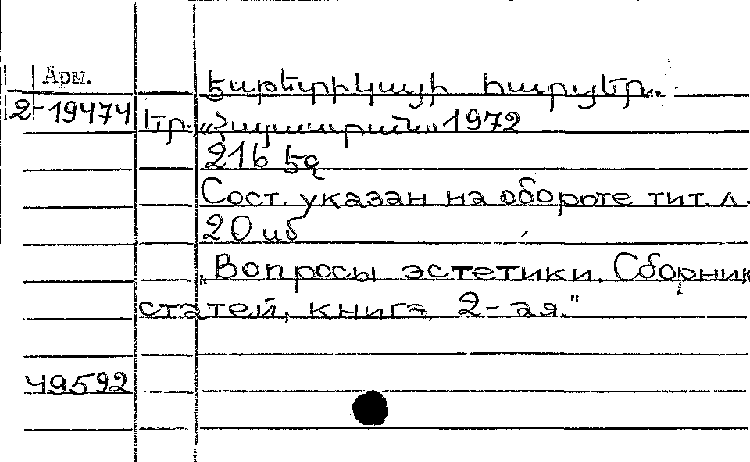 Арм.
Էսթետիկայի հարցեր.
2-19474
Եր. „Հայաստան“ 1972
216 էջ
Сост. указан на обороте тит. л.
20 սմ
„Вопросы эстетики. Сборник
статей, книга 2-ая."
49592